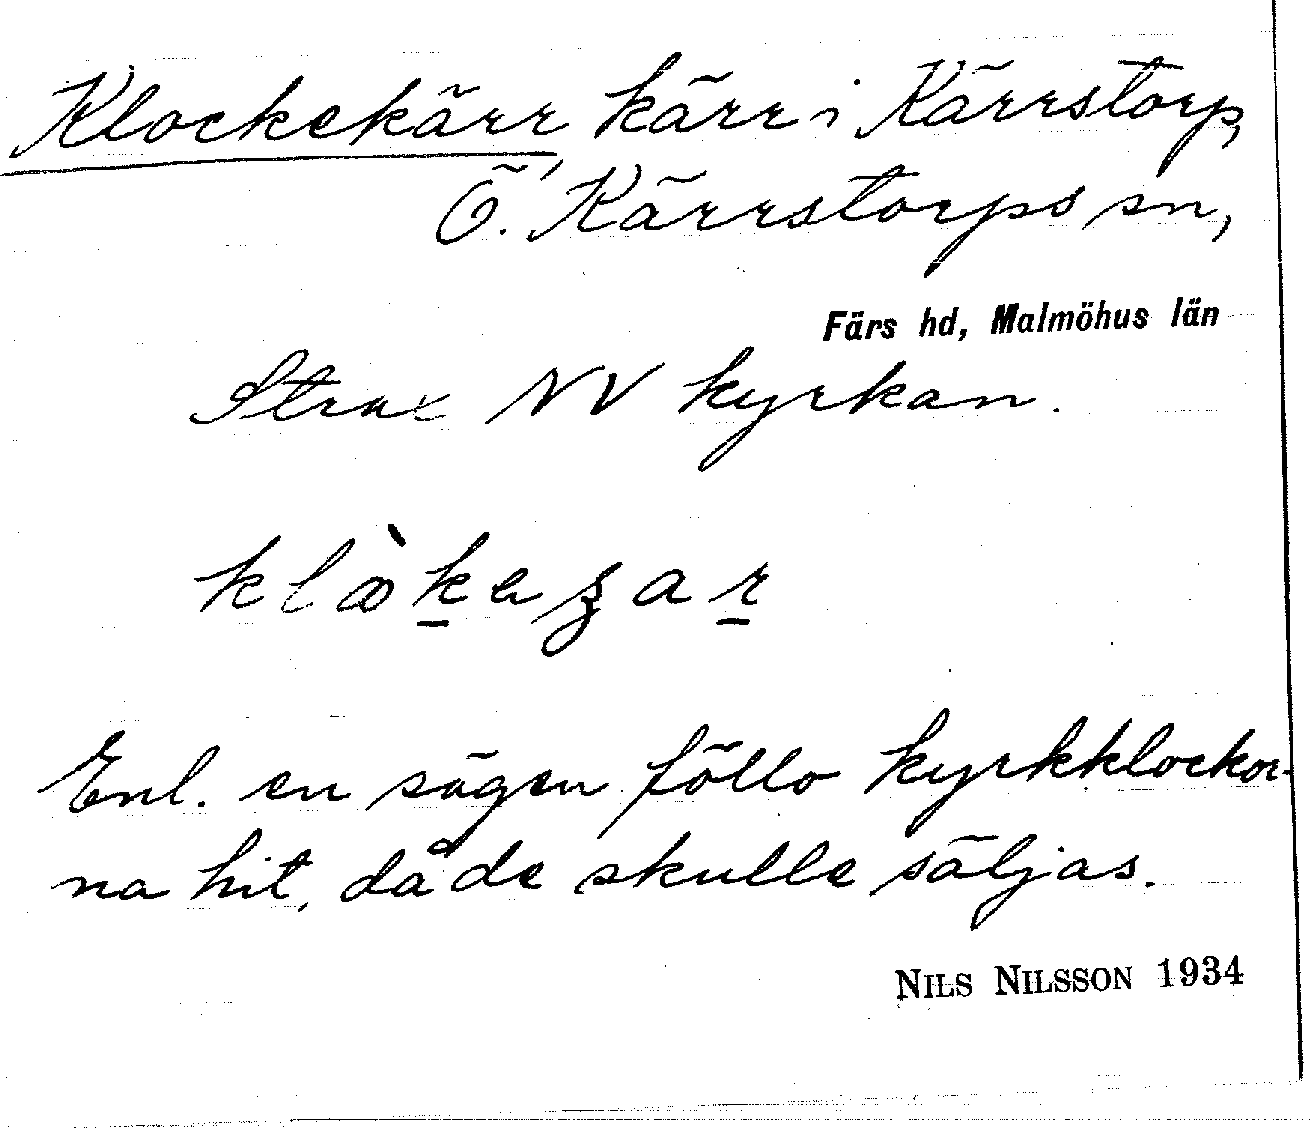 Klockekärr, kärr i Kärrstorp,
Ö. Kärrstorps sn,
Färs hd, Malmöhus län
Strax NV kyrkan.
Enl. en sägen föllo kyrkklockor-
na hit, då de skulle säljas.
NILS NILSSON 1934